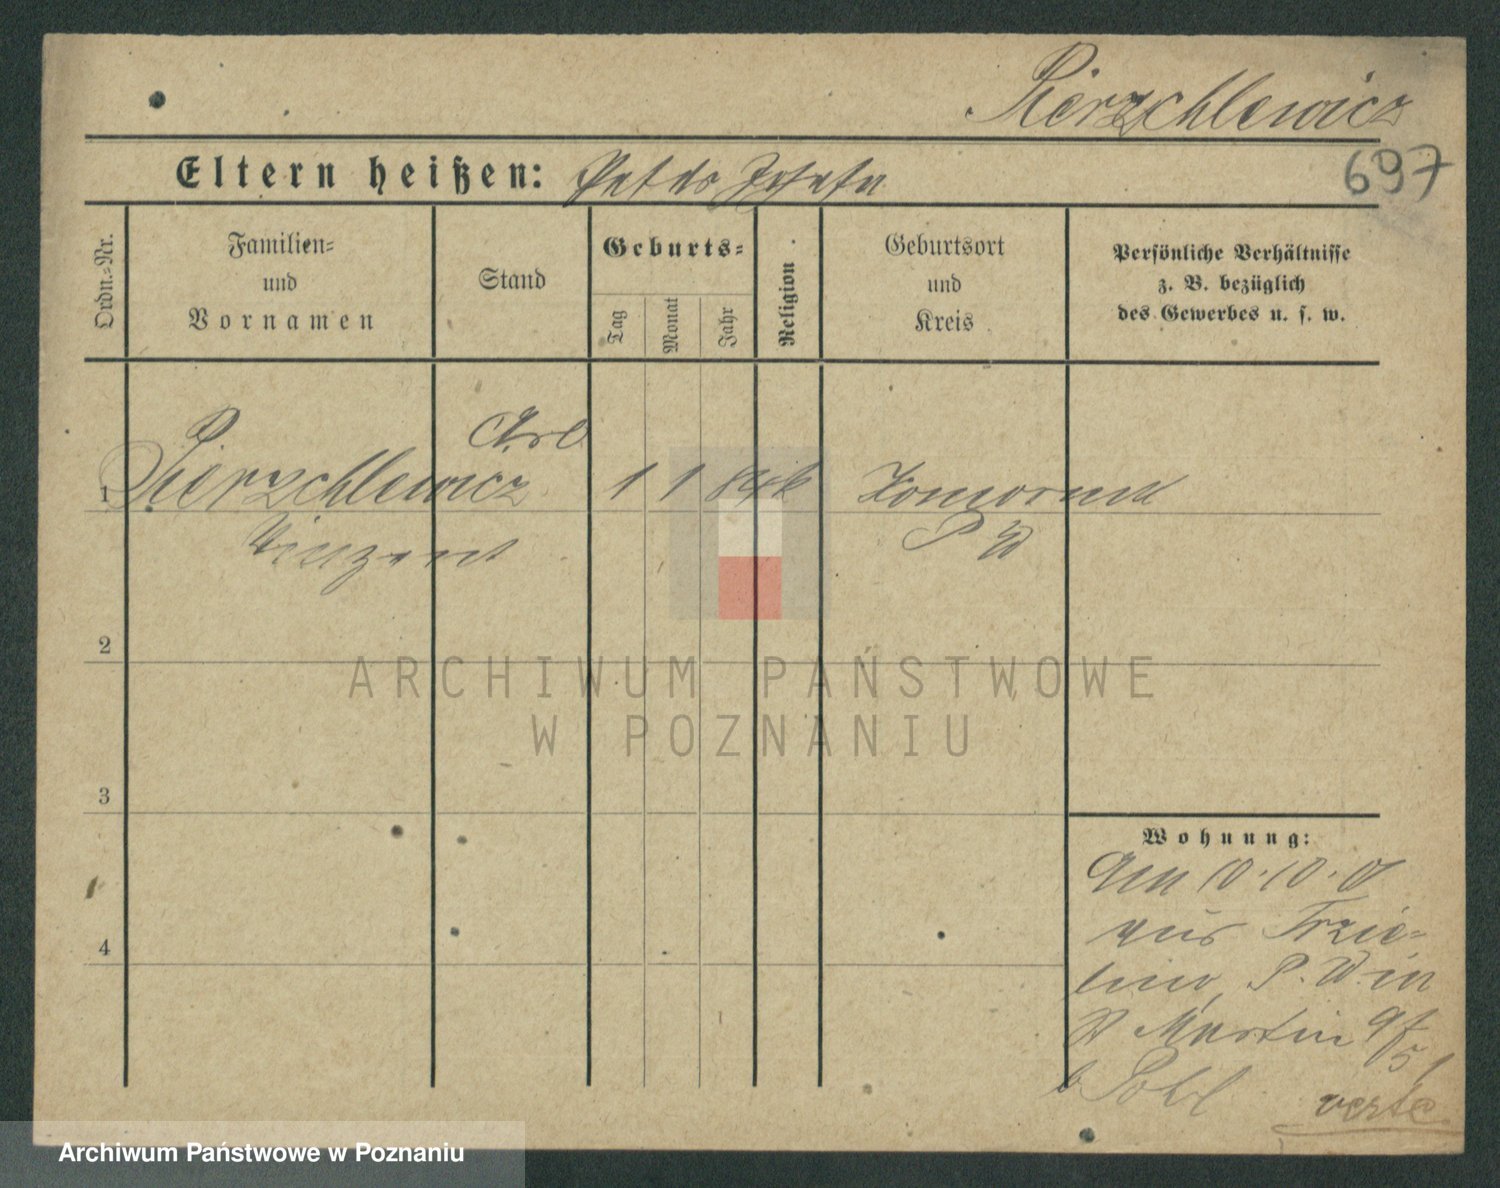 Pierzchlewicz
697
Eltern heißen:
Ordn.=Nr.
Familien=
und
Vornamen
Stand
Geburts=
Tag
Monat
Jahr
Religion
Geburtsort
und
Kreis
Persönliche Verhältnisse
z. B. bezüglich
des Gewerbes u. s. w.
Arb
1 Pierzchlewicz 1 1 84 k
Vinzent
P W
2
3
4
ARCHIWUM PAŃSTWOWE
W POZNANIU
Wohnung:
Am 10.10.0
aus Trzie=
lino, P. W. in
St Martin
b Pohl
verte
Archiwum Państwowe w Poznaniu